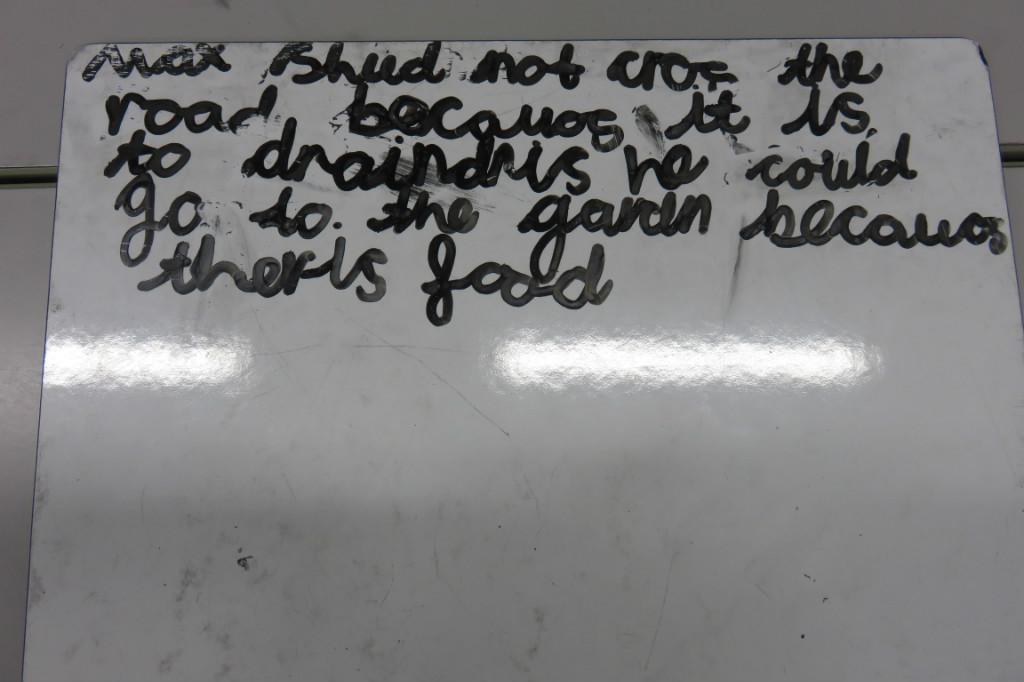 Max Shud not cros the
road becauos it is
to draindris he could
go to. the garen becauos
theris food